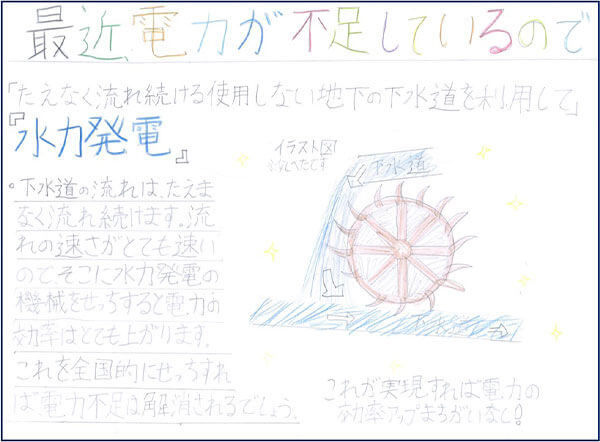 最近、電力が不足しているので
「たえなく流れ続ける使用しない地下の下水道を利用して」
『水力発電』
イラスト図
※へたです
下水道
・下水道の流れは、たえま
なく流れ続けます。流
れの速さがとても速い
ので、そこに水力発電の
機械をせっちすると電力の
効率はとても上がります。
これを全国的にせっちすれ
ば電力不足は解消されるでしょう。
これが実現すれば電力の
効率アップまちがいなし!